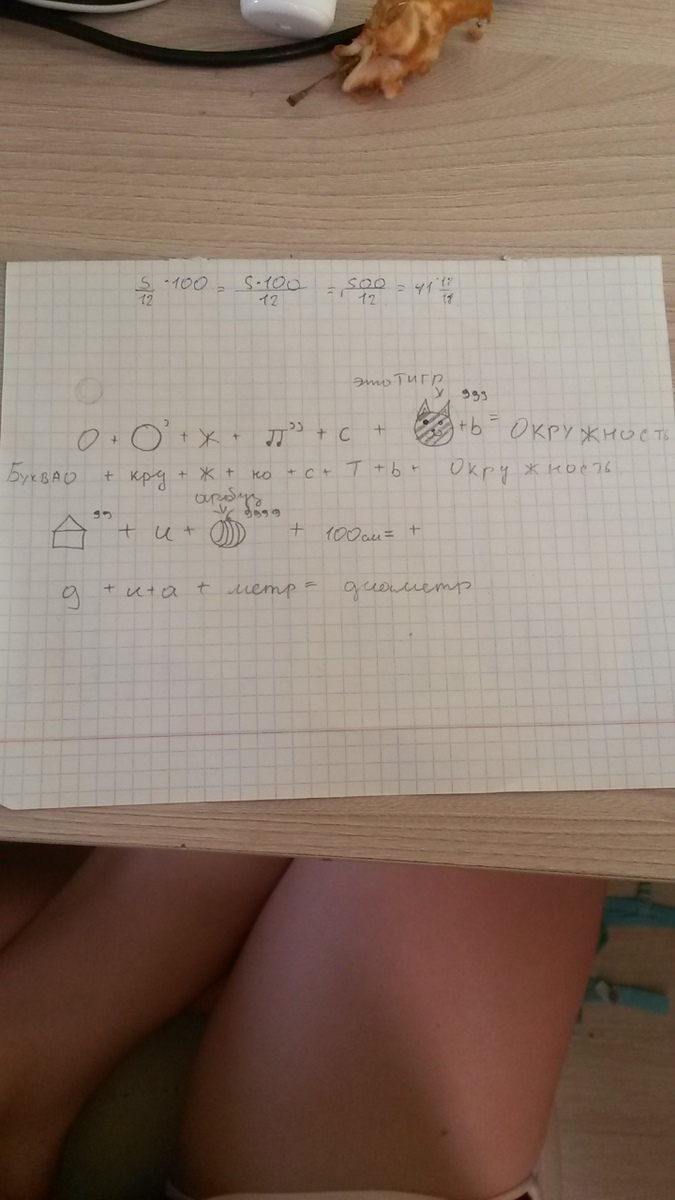 5/12 · 100 = 5·100/12 = 500/12 =
это тигр
О + ◯’ + Ж + ♫’’ + с + ’’’ + ь = Окружность
Буква О + кру + ж + но + с + т + ь + Окружность
арбуз
’’ + и + ’’’’ + 100см = +
д + и + а + метр = диаметр